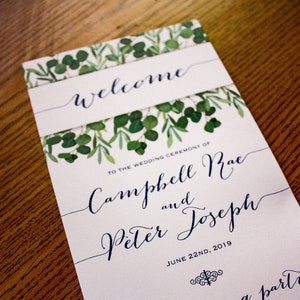 welcome
TO THE WEDDING CEREMONY OF
Campbell Rae
and
Peter Joseph
JUNE 22ND, 2019